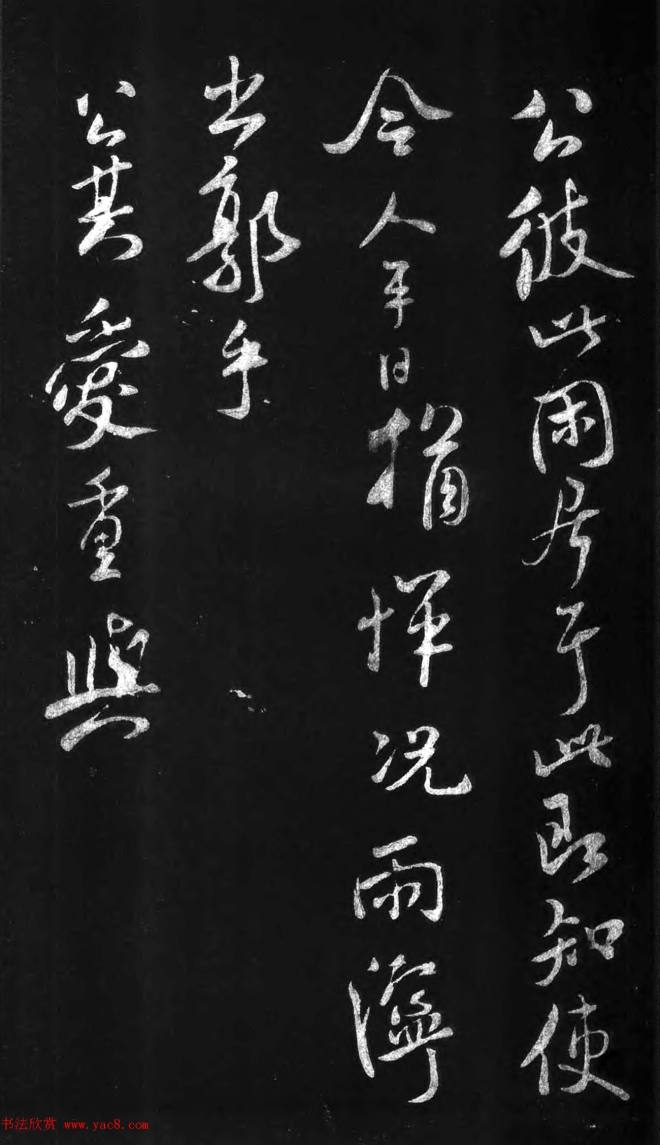 公彼此閑居于此即知使
令人平日捐況雨濘
出郭乎
公其愛重與
书法欣赏 www.yac8.com